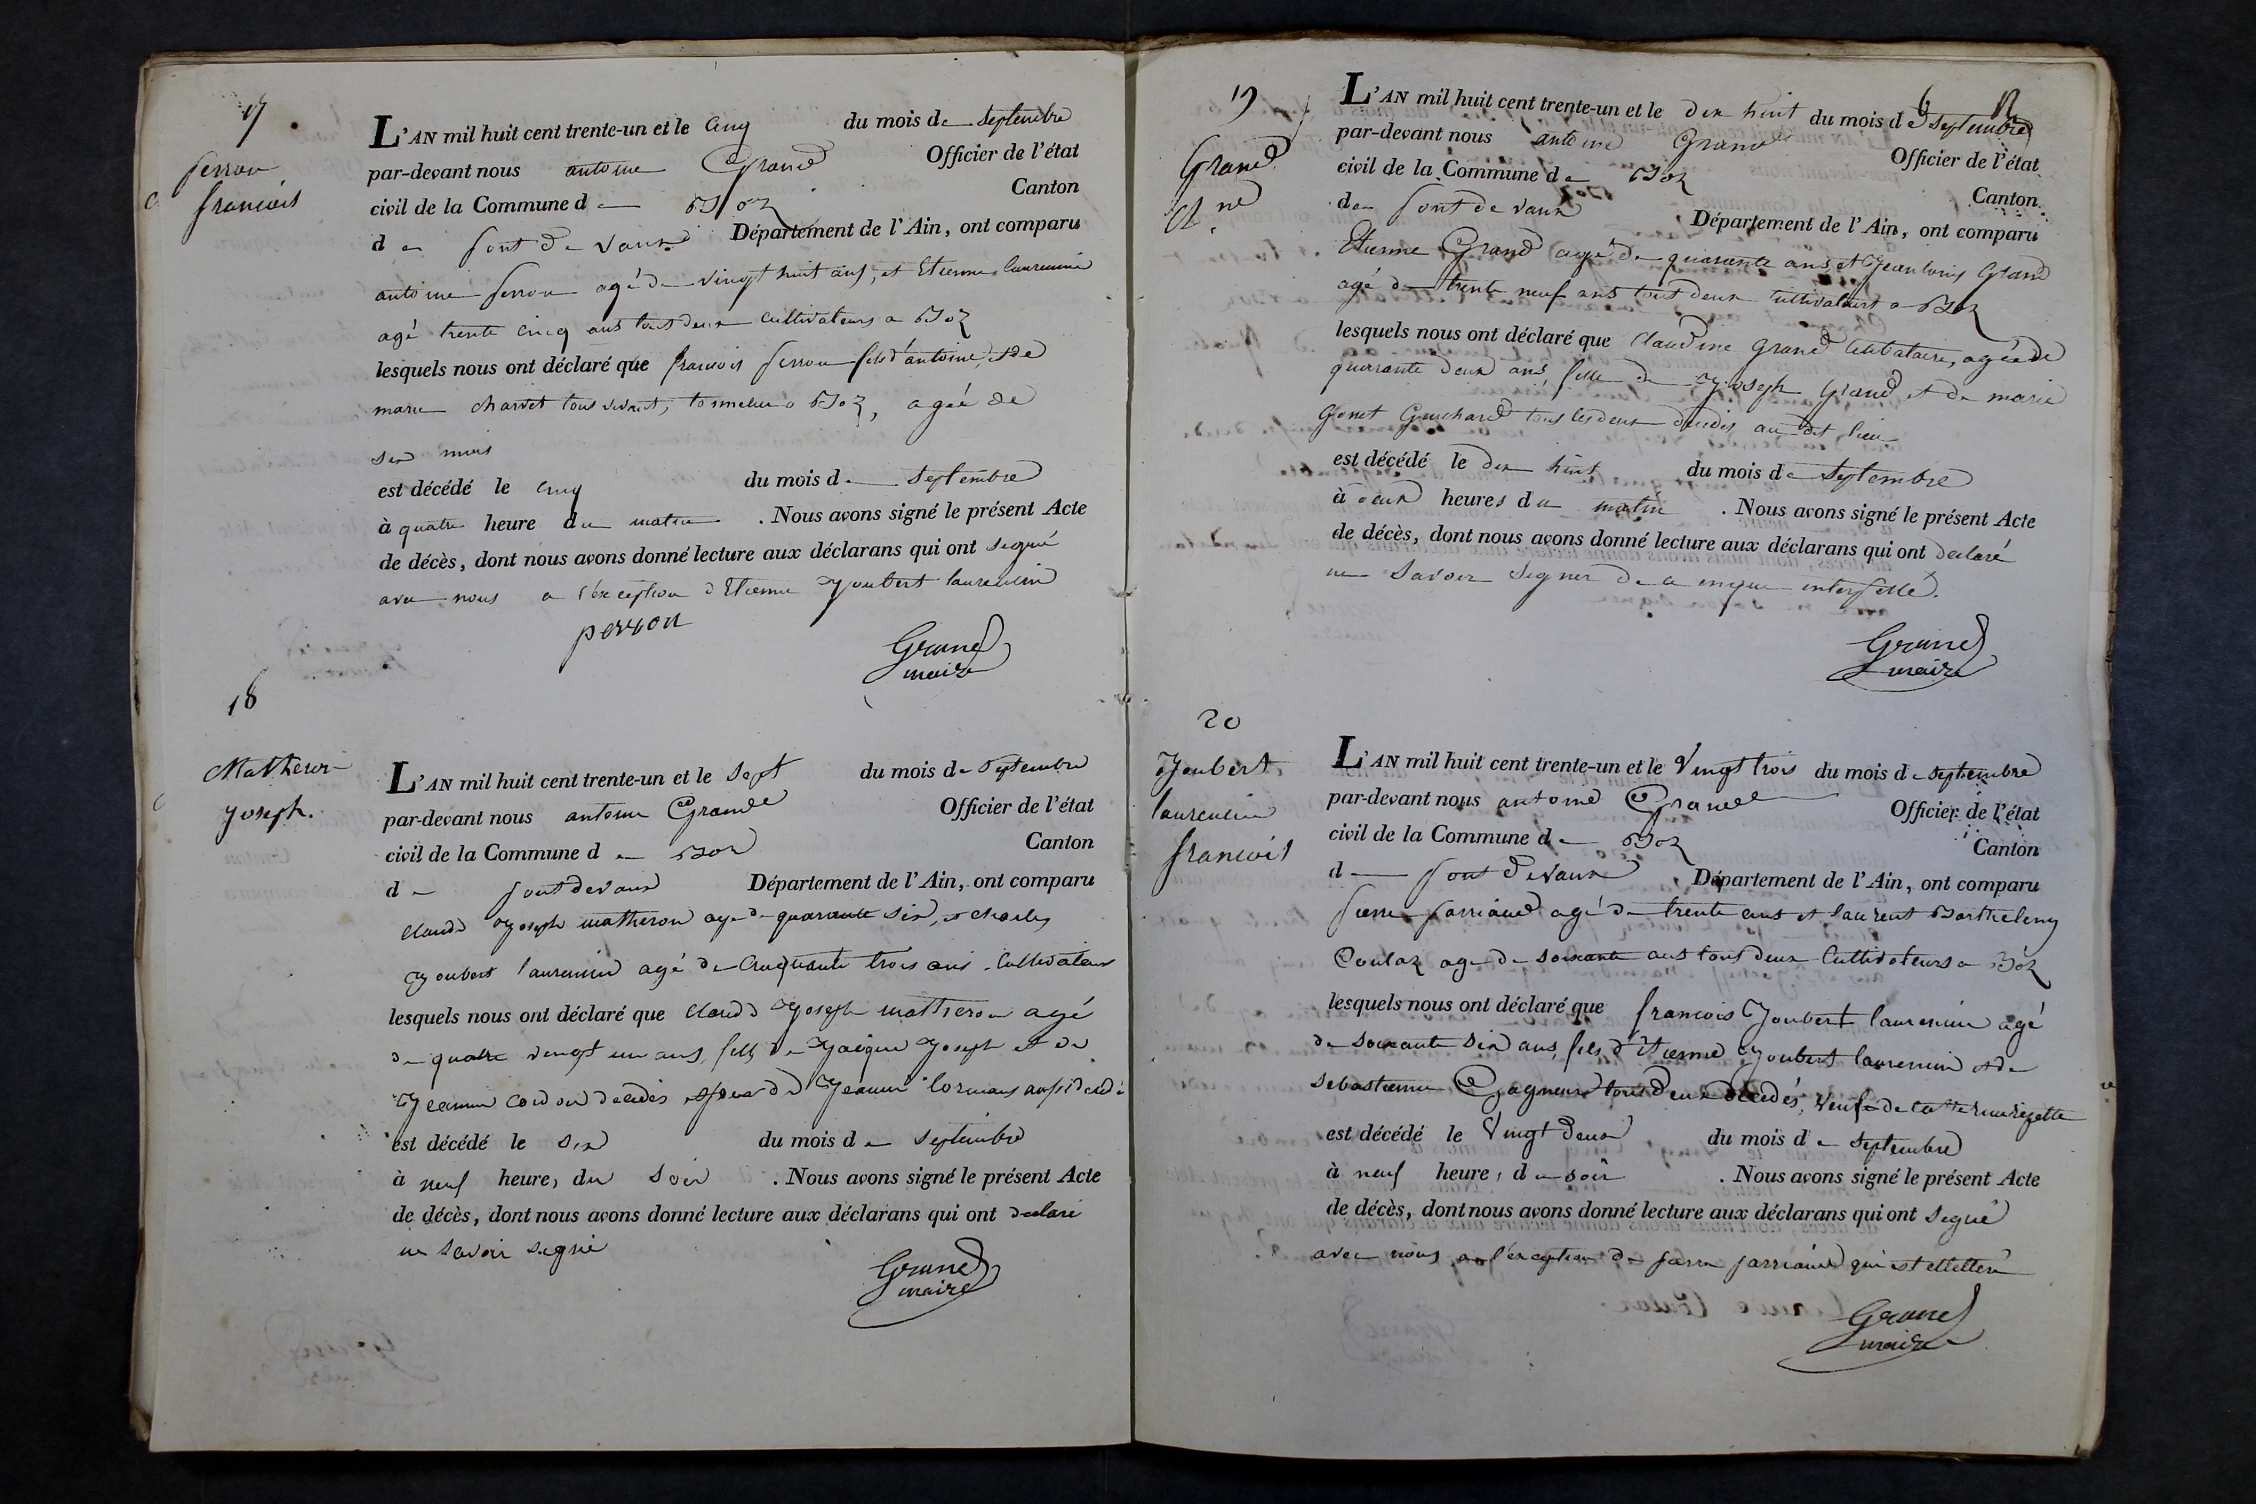 17
perron
francois
L'AN mil huit cent trente-un et le cinq du mois de septembre
par-devant nous antoine Grand Officier de l'état
civil de la Commune de Boz Canton
de pont de vaux Département de l'Ain, ont comparu
antoine perron agé de vingt huit ans, et Etienne laurencin
agé trente cinq ans tous deux cultivateurs a Boz
lesquels nous ont déclaré que francois perron fils d'antoine, et de
marie charvet tous vivant, a Boz, agée de
six mois
est décédé le cinq du mois de septembre
à quatre heure du matin . Nous avons signé le présent Acte
de décès, dont nous avons donné lecture aux déclarans qui ont signé
avec nous a l'exception d'Etienne Joubert laurencin
perron
Grand
maire
18
Matheron
Joseph.
L'AN mil huit cent trente-un et le sept du mois de septembre
par-devant nous antoine Grand Officier de l'état
civil de la Commune de Boz Canton
de pontdevaux Département de l'Ain, ont comparu
claude Joseph matheron agé de quarante six, et charles
Joubert laurencin agé de cinquante trois ans cultivateurs
lesquels nous ont déclaré que claude Joseph matheron agé
de quatre vingt un ans, fils de Jacque Joseph et de
Jeanne décédés époux de Jeanne aussi décédé
est décédé le six du mois de septembre
à neuf heure, du soir . Nous avons signé le présent Acte
de décès, dont nous avons donné lecture aux déclarans qui ont declaré
ne savoir signé
Grand
maire
19
Grand
Cl.ne
L'AN mil huit cent trente-un et le dix huit du mois de septembre
par-devant nous antoine Grand Officier de l'état
civil de la Commune de Boz Canton
de pont de vaux Département de l'Ain, ont comparu
Etienne Grand agé de quarante ans et Jean louis Grand
agé de trente neuf ans tous deux cultivateurs a Boz
lesquels nous ont déclaré que claudine Grand celibataire, agée de
quarante deux ans, fille de Joseph Grand et de marie
Genet Guichard tous les deux décédés au dit lieu
est décédé le dix huit du mois de septembre
à deux heures du matin . Nous avons signé le présent Acte
de décès, dont nous avons donné lecture aux déclarans qui ont declaré
ne savoir signer de ce enque interpellé.
Grand
maire
20
Joubert
laurencin
francois
L'AN mil huit cent trente-un et le vingt trois du mois de septembre
par-devant nous antoine Grand Officier de l'état
civil de la Commune de Boz Canton
de pont de vaux Département de l'Ain, ont comparu
pierre agé de trente ans et laurent Barthelemy
Coulaz agé de soixante ans tous deux cultivateurs a Boz
lesquels nous ont déclaré que francois Joubert laurencin agé
de soixante six ans, fils d'Etienne Joubert laurencin et de
sebastienne Gagneur tous deux décédés, veuf de
est décédé le vingt deux du mois de septembre
à neuf heure, du soir . Nous avons signé le présent Acte
de décès, dont nous avons donné lecture aux déclarans qui ont signé
avec nous, a l'exception de pierre qui est elletteré
Grand
maire